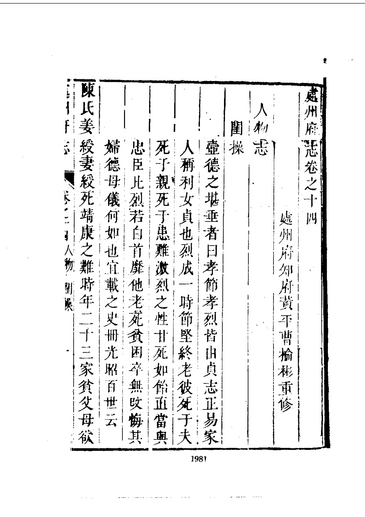 處州府志卷之十四
處州府知府黃平曹掄彬重修
人物志
閨操
壼德之堪垂者曰孝節孝烈皆由貞志正易家
人稱利女貞也烈成一時節堅終老彼死于夫
死于親死于患難激烈之性甘死如飴直當與
忠臣比烈若白首靡他老死貧困卒無改悔其
婦德母儀何如也宜載之史冊光昭百世云
陳氏姜綬妻綬死靖康之難時年二十三家貧父母欲
州府志 卷之十四 人物 閨操 一
1981